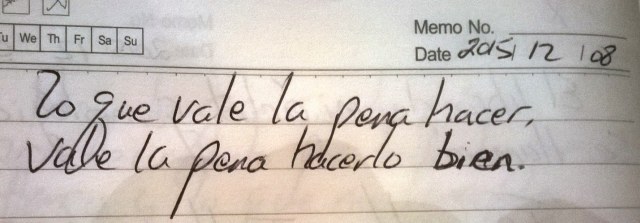 Memo No.
u We Th Fr Sa Su
Date 2015/12/08
Lo que vale la pena hacer,
vale la pena hacerlo bien.